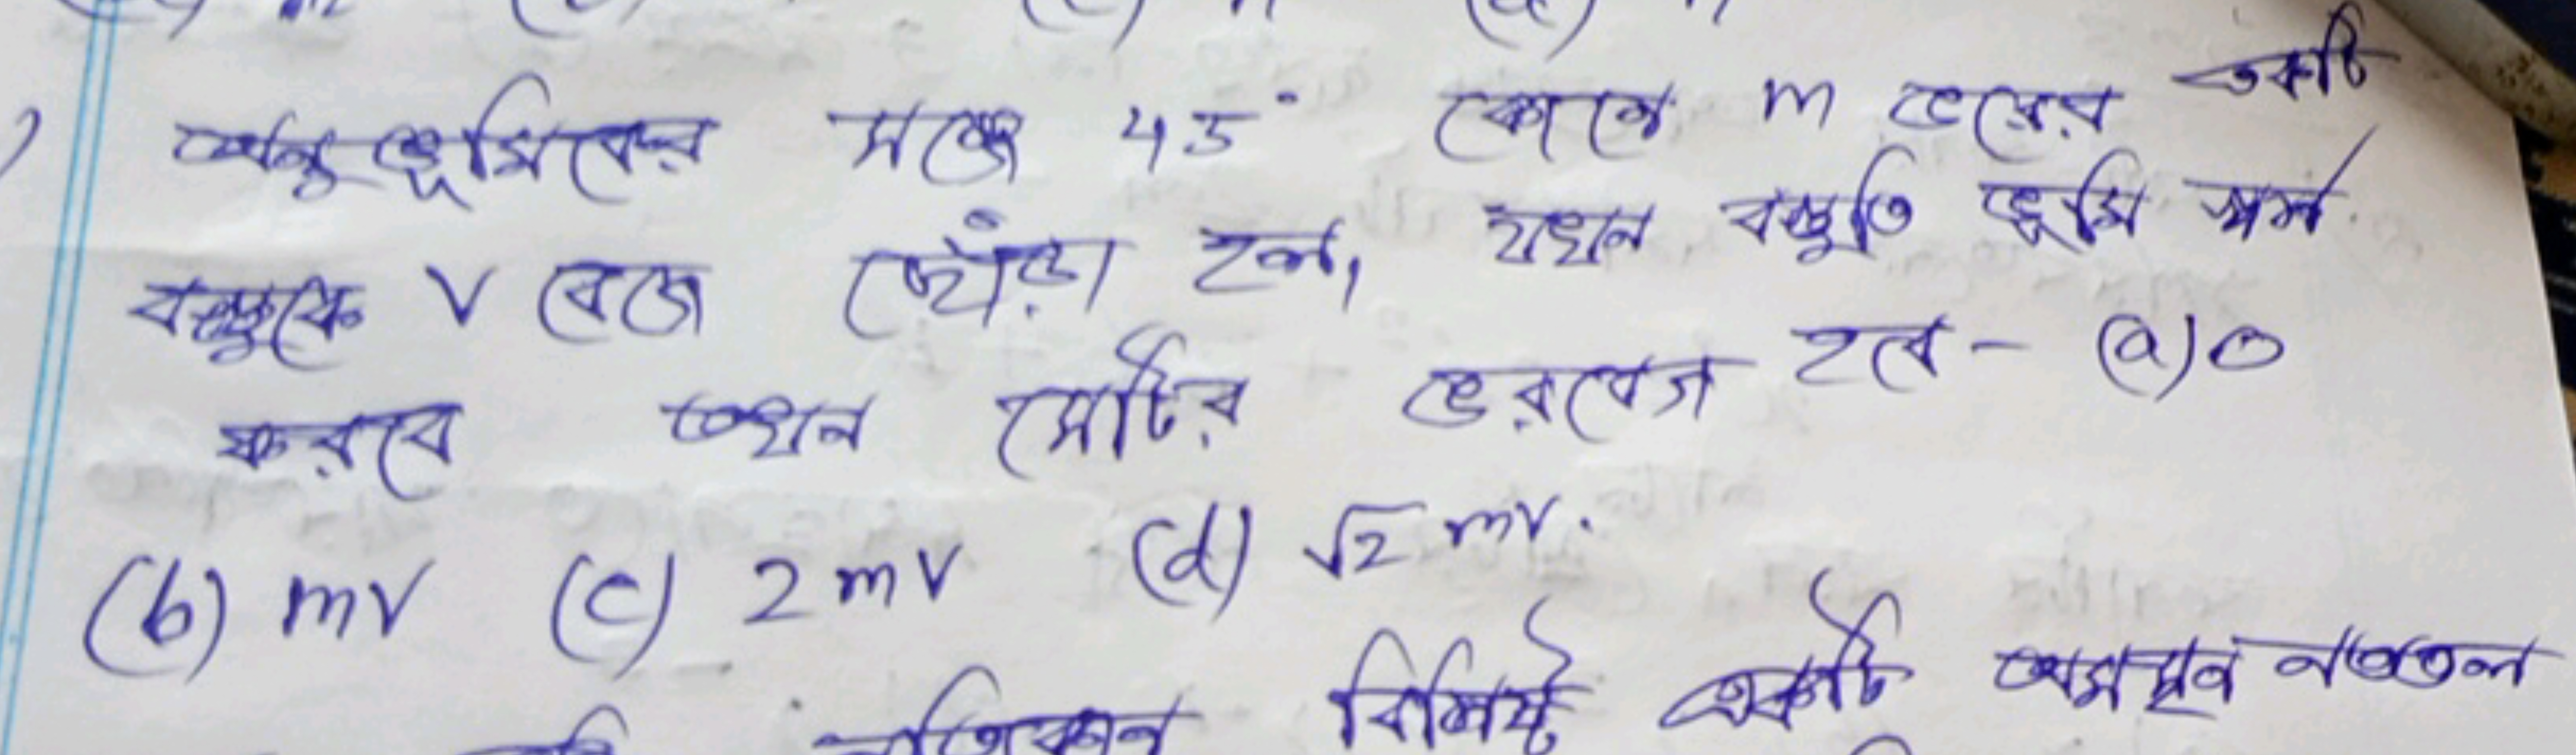 অনুভূমিকের সঙ্গে 45° কোণে m ভরের একটি
বস্তুকে V বেগে ছোঁড়া হল, যখন বস্তুটি ভূমি স্পর্শ
করবে তখন সেটির ভরবেগ হবে - (a) 0
(b) mv (c) 2mv (d) √2 mv.
বিশিষ্ট একটি অমসৃণ নততল